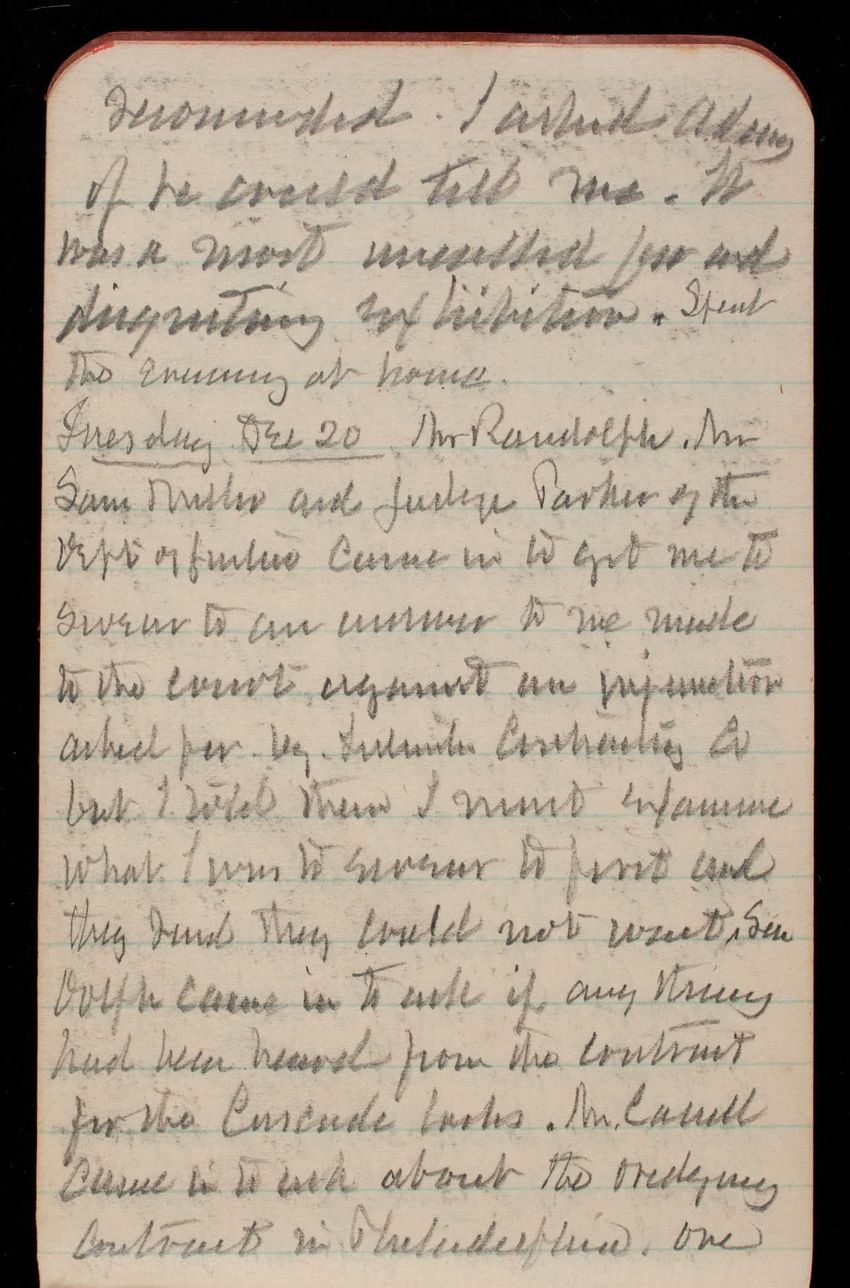 I asked Adams
if he could tell me. It
was a most uncalled for and
disgusting exhibition. Spent
the evening at home.
Tuesday Dec 20 Mr Randolph, Mr
Sam and Judge Parker of the
Dept of Justice came in to get me to
swear to an answer to be made
to the court against an injunction
asked for by Contracting Co
but I told them I must examine
what I was to swear to first and
they said they could not wait. Sen
Dolph came in to ask if any thing
had been heard from the contract
for the Cascade locks. Mr.
came in to ask about the dredging
contract in Philadelphia. One